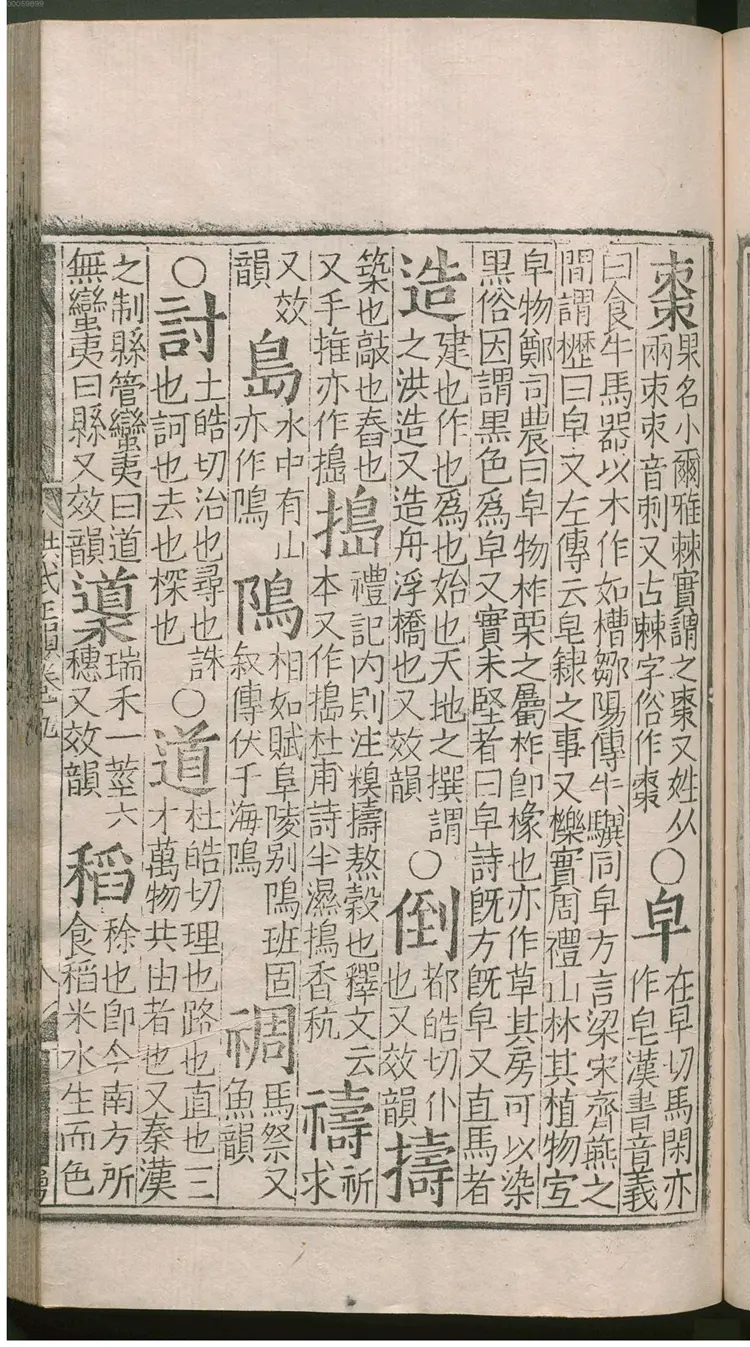 棗果名小爾雅棘實謂之棗又姓从兩朿朿音刺又古棘字俗作棗○皁在早切馬閑亦作皂漢書音義
曰食牛馬器以木作如槽鄒陽傳牛驥同皁方言梁宋齊燕之間謂櫪曰皁又左傳云皂隸之事又櫟實周禮山林其植物宜
皁物鄭司農曰皁物柞栗之屬柞卽橡也亦作草其房可以染黑俗因謂黑色爲皁又實未堅者曰皁詩旣方旣皁又直馬者
造建也作也爲也始也天地之撰謂之洪造又造舟浮橋也又效韻○倒都皓切仆也又效韻擣
築也敲也舂也又手推亦作搗搗禮記内則注糗擣熬穀也釋文云本又作搗杜甫詩半濕搗香秔禱祈求
又效韻島水中有山亦作隝隝相如賦阜陵别隝班固叙傳伏于海隝禂馬祭又魚韻
○討土皓切治也尋也誅也訶也去也探也○道杜皓切理也路也直也三才萬物共由者也又秦漢
之制縣管蠻夷曰道無蠻夷曰縣又效韻䆃瑞禾一莖六穗又效韻稻稌也卽今南方所食稻米水生而色
洪武正韻卷之九